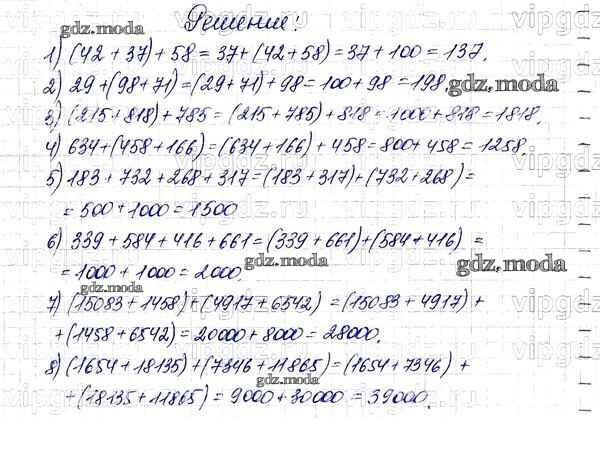 Решение:
1) (42 + 37) + 58 = 37 + (42 + 58) = 37 + 100 = 137.
2) 29 + (98 + 71) = (29 + 71) + 98 = 100 + 98 = 198.
gdz.moda
3) (215 + 818) + 785 = (215 + 785) + 818 = 1000 + 818 = 1818.
4) 634 + (458 + 166) = (634 + 166) + 458 = 800 + 458 = 1258.
gdz.moda
5) 183 + 732 + 268 + 317 = (183 + 317) + (732 + 268) =
= 500 + 1000 = 1500
6) 339 + 584 + 416 + 661 = (339 + 661) + (584 + 416) =
= 1000 + 1000 = 2000.
gdz.moda
gdz.moda
gdz.moda
7) (15083 + 1458) + (4917 + 6542) = (15083 + 4917) +
+ (1458 + 6542) = 20000 + 8000 = 28000.
8) (1654 + 18135) + (7346 + 11865) = (1654 + 7346) +
gdz.moda
+ (18135 + 11865) = 9000 + 30000 = 39000.